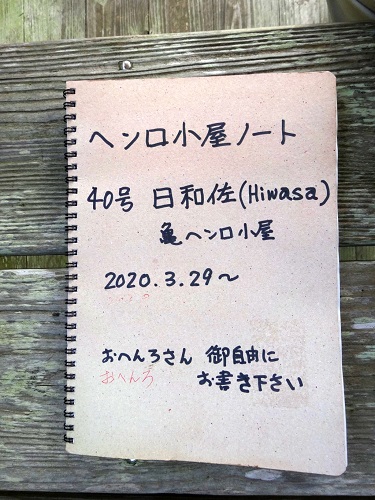 ヘンロ小屋ノート
40号 日和佐(Hiwasa)
亀ヘンロ小屋
2020.3.29〜
おへんろさん 御自由に
おへんろ お書き下さい